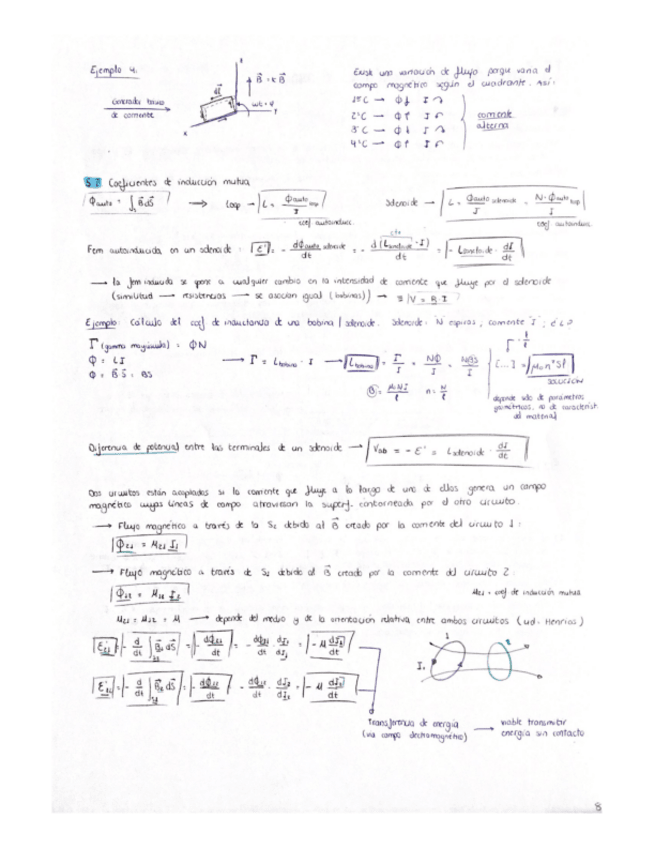 Ejemplo 4.
Generador básico
de corriente
z
B = kB
dl
ωt = φ
y
x
Existe una variación de flujo porque varía el
campo magnético según el cuadrante. Así:
1ºC → Φ↓ I ↷
2ºC → Φ↑ I ↶
3ºC → Φ↓ I ↷
4ºC → Φ↑ I ↶
corriente
alterna
Coeficientes de inducción mutua
Φauto = ∫s B dS → Loop → L = Φauto loop / I
coef autoinducc.
Solenoide → L = Φauto solenoide / I = N·Φauto loop / I
coef autoinducc.
Fem autoinducida en un solenoide: ε' = - dΦauto solenoide / dt = - d(Lsolenoide · I) / dt = - Lsolenoide · dI/dt
cte
→ la fem inducida se opone a cualquier cambio en la intensidad de corriente que fluye por el solenoide
(similitud → resistencias → se asocian igual (bobinas)) → V = R·I
Ejemplo: Cálculo del coef de inductancia de una bobina / solenoide. Solenoide: N espiras; corriente I; ¿L?
Γ (gamma mayúscula) = ΦN
Φ = LI
Φ = B·S = BS
→ Γ = Lbobina · I → Lbobina = Γ/I = NΦ/I = NBS/I
B = μ₀NI/l n = N/l
[...] = μ₀n²Sl
SOLUCIÓN
depende sólo de parámetros
geométricos, no de caracterist.
del material
Diferencia de potencial entre las terminales de un solenoide → Vab = - ε' = Lsolenoide · dI/dt
Dos circuitos están acoplados si la corriente que fluye a lo largo de uno de ellos genera un campo
magnético cuyas líneas de campo atraviesan la superf. contorneada por el otro circuito.
→ Flujo magnético a través de la S₂ debido al B creado por la corriente del circuito 1:
Φ₂₁ = M₂₁ I₁
→ Flujo magnético a través de S₁ debido al B creado por la corriente del circuito 2:
Φ₁₂ = M₁₂ I₂
M₂₁ = coef de inducción mutua
M₂₁ = M₁₂ = M → depende del medio y de la orientación relativa entre ambos circuitos (ud. Henrios)
1
2
I₁
Transferencia de energía
(vía campo electromagnético)
→ viable transmitir
energía sin contacto
8